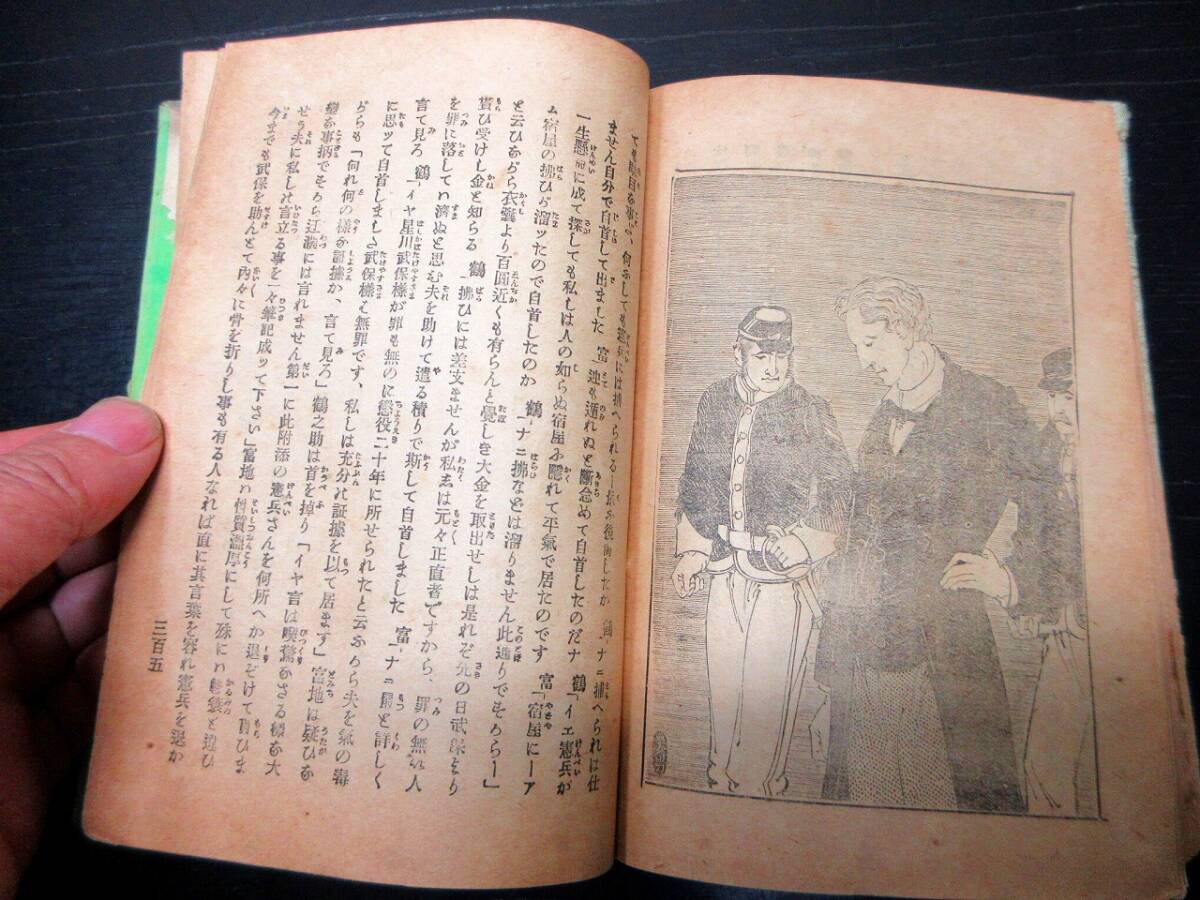 ません自分で自首して出ました 富「迚も遁れぬと斷念めて自首したのだナ 鶴「イエ憲兵が
一生懸命に成て探しても私しは人の知らぬ宿屋に隱れて平氣で居たのです 富「宿屋にーア
ム宿屋の拂ひが溜ッたので自首したのか 鶴「ナニ拂などは溜りません此通りでそろらー」
と云ひながら衣嚢より百圓近くも有らんと覺しき大金を取出せしは是れぞ先の日武保より
貰ひ受けし金と知らる 鶴「拂ひには差支ませんが私しは元々正直者ですから、罪の無い人
を罪に落してい濟ぬと思ひ夫を助けて遣る積りで斯して自首しました 富「ナニ最と詳しく
言て見ろ 鶴「イヤ星川武保樣が罪も無のに懲役二十年に所せられたと云ふから夫を氣の毒
に思ッて自首しました武保樣は無罪です、私しは充分の証據を以て居ます」富地は疑ひな
がらも「何れ何の樣な証據か、言て見ろ」鶴之助は首を掉り「イヤ言は喫驚なさる樣な大
變な事柄でそろら江湖には言れません第一に此附添の憲兵さんを何所へか退ぞけて貰ひま
せう夫に私しの言立る事を一々筆記成ッて下さい」富地は性質温厚にして殊に と違ひ
今までも武保を助んとて内々に骨を折りし事も有る人なれば直に其言葉を容れ憲兵を退か
三百五